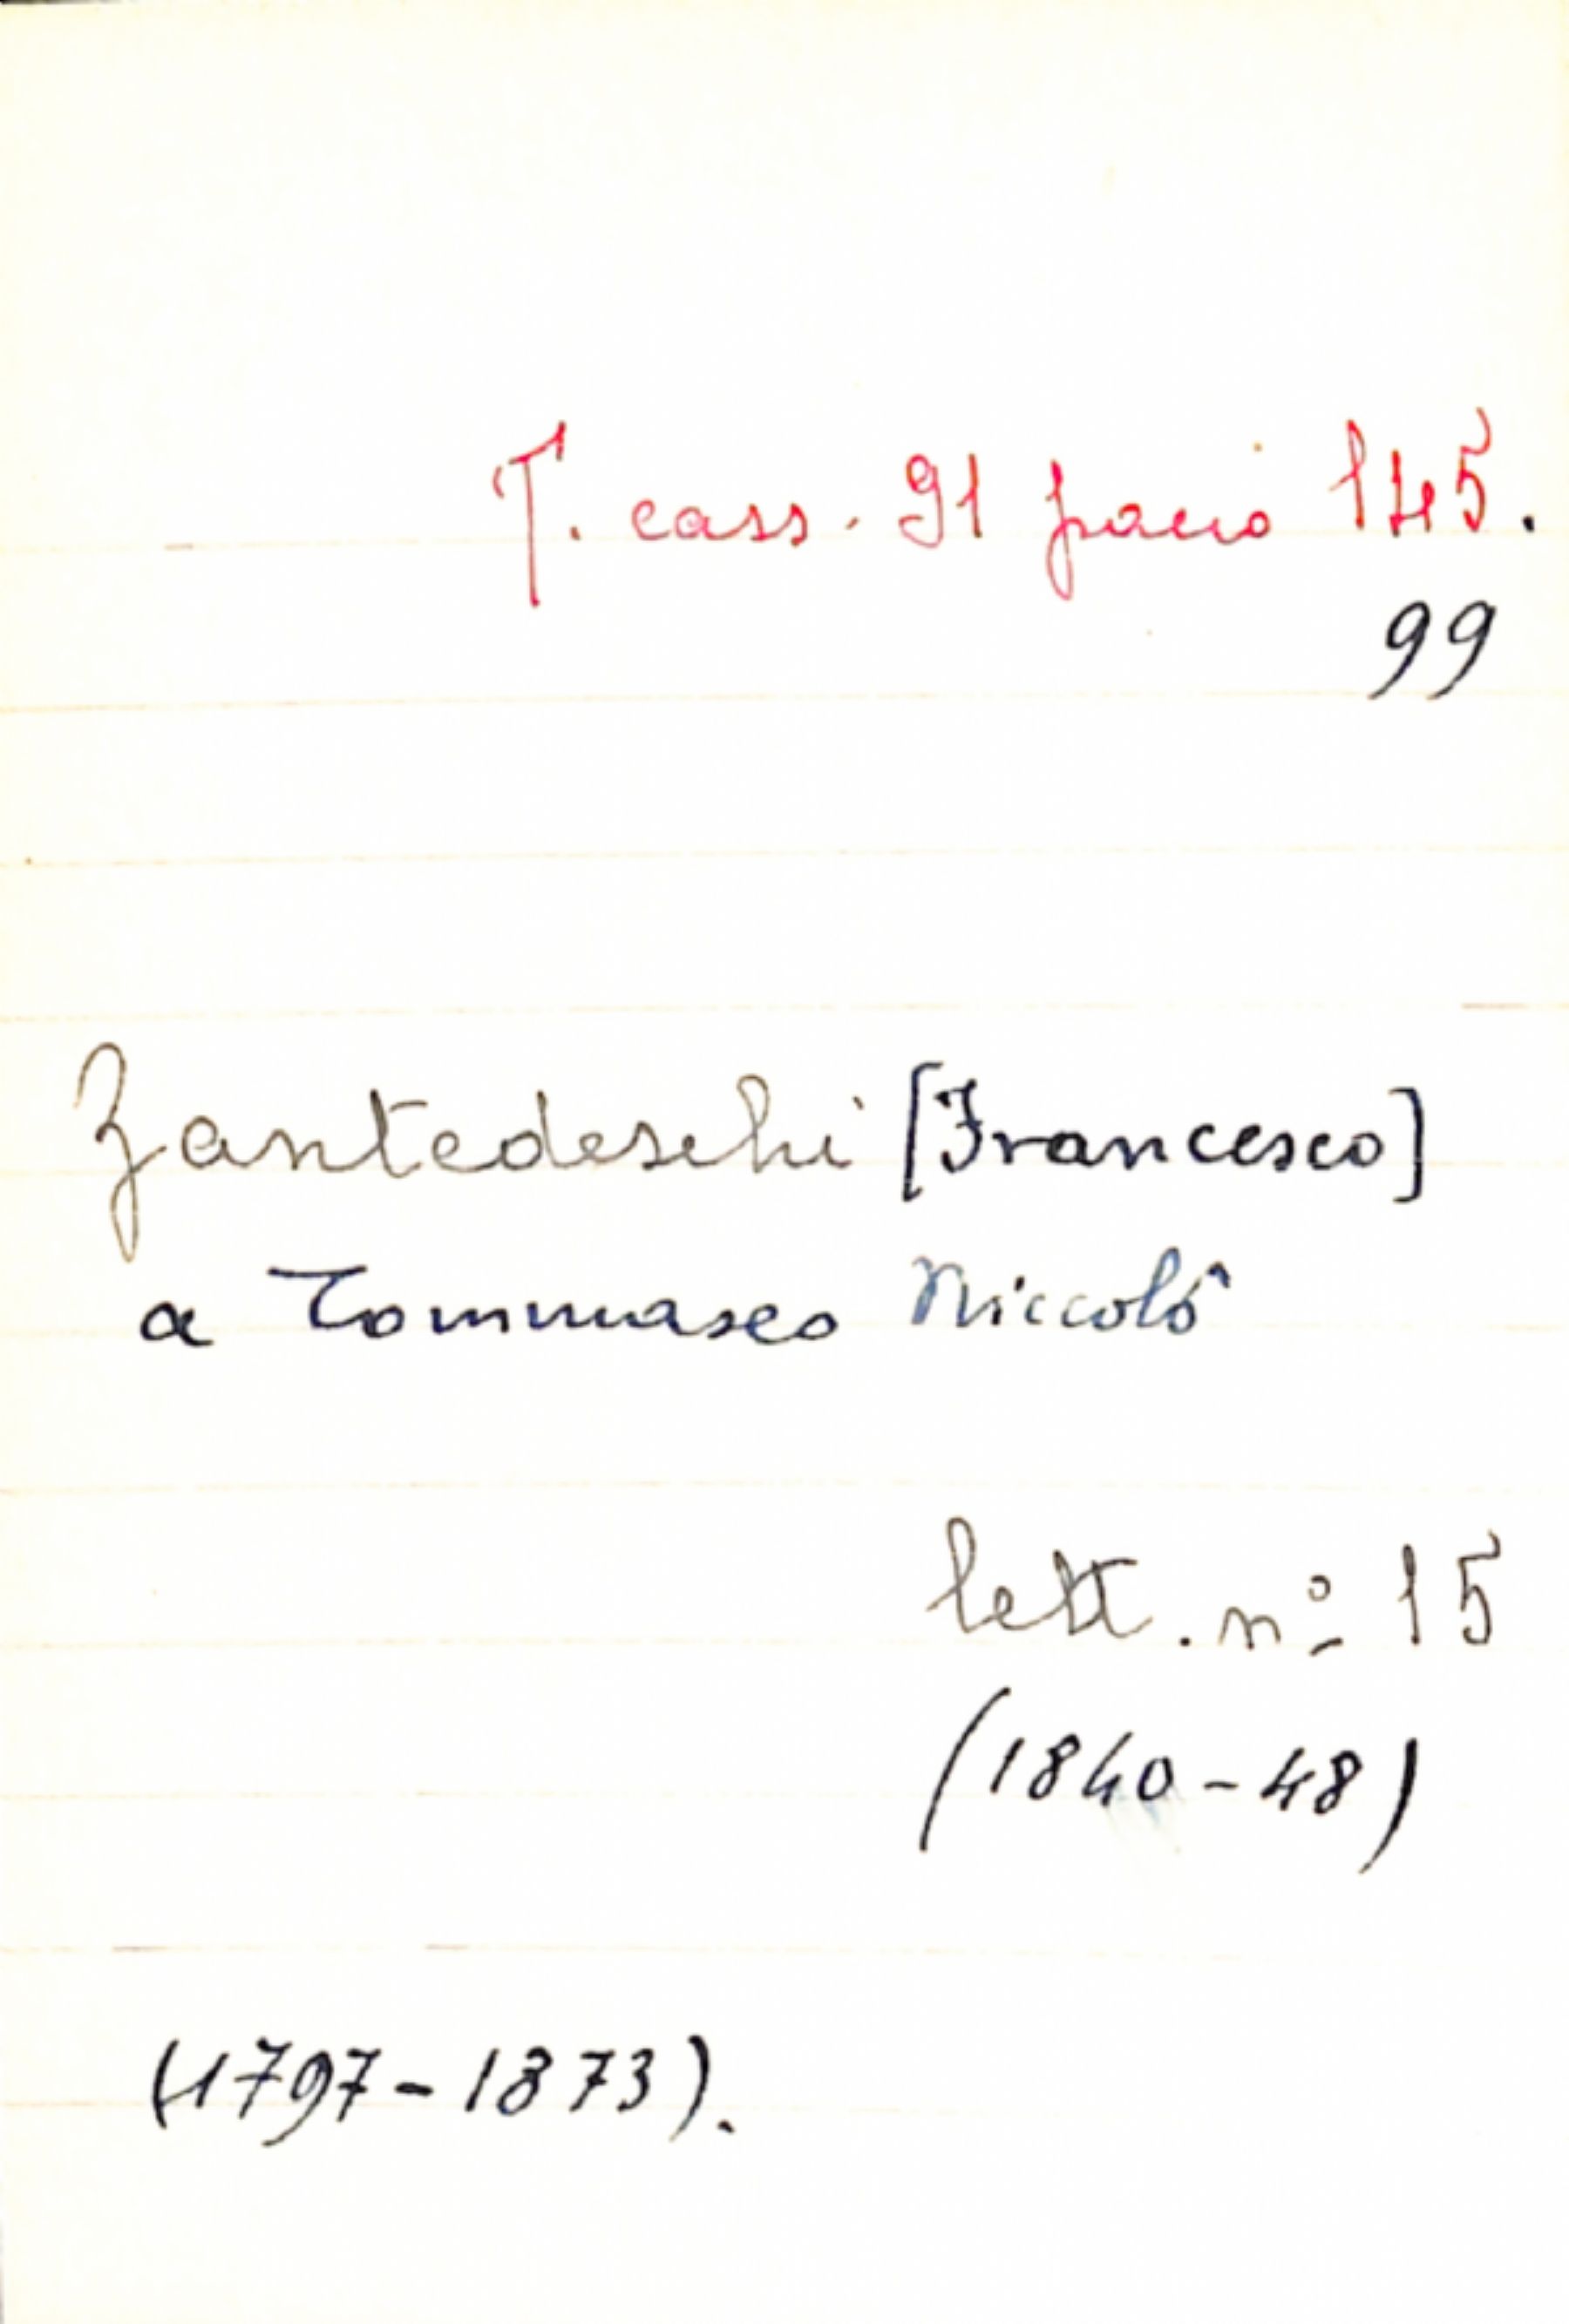 T. cass. 91 pacco 145.
99
Zantedeschi [Francesco]
a Tommaseo Niccolò
lett. nº 15
(1840-48)
(1797-1873).